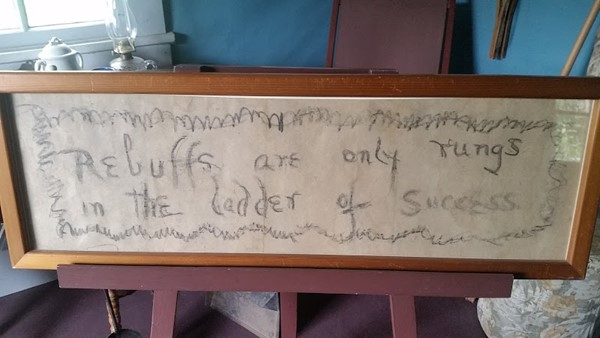 Rebuffs are only rungs
in the ladder of Success.